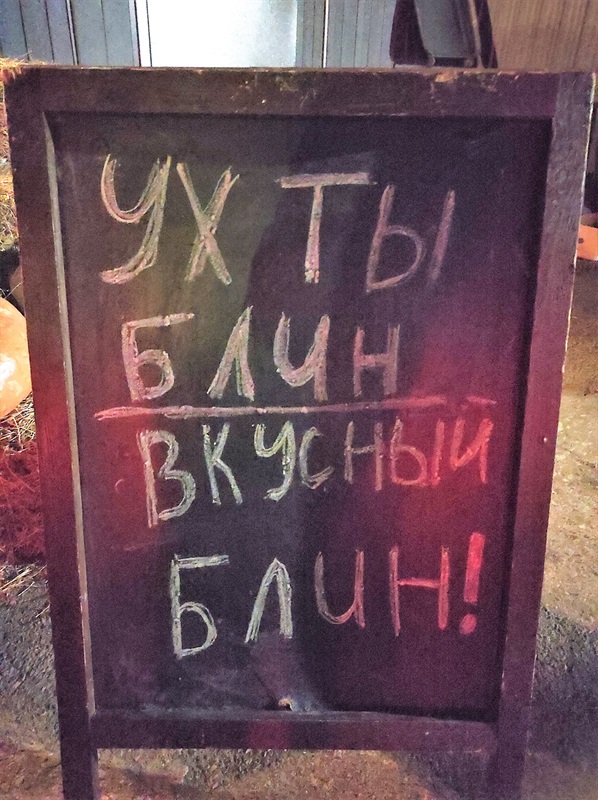 УХ ТЫ
БЛИН
ВКУСНЫЙ
БЛИН!